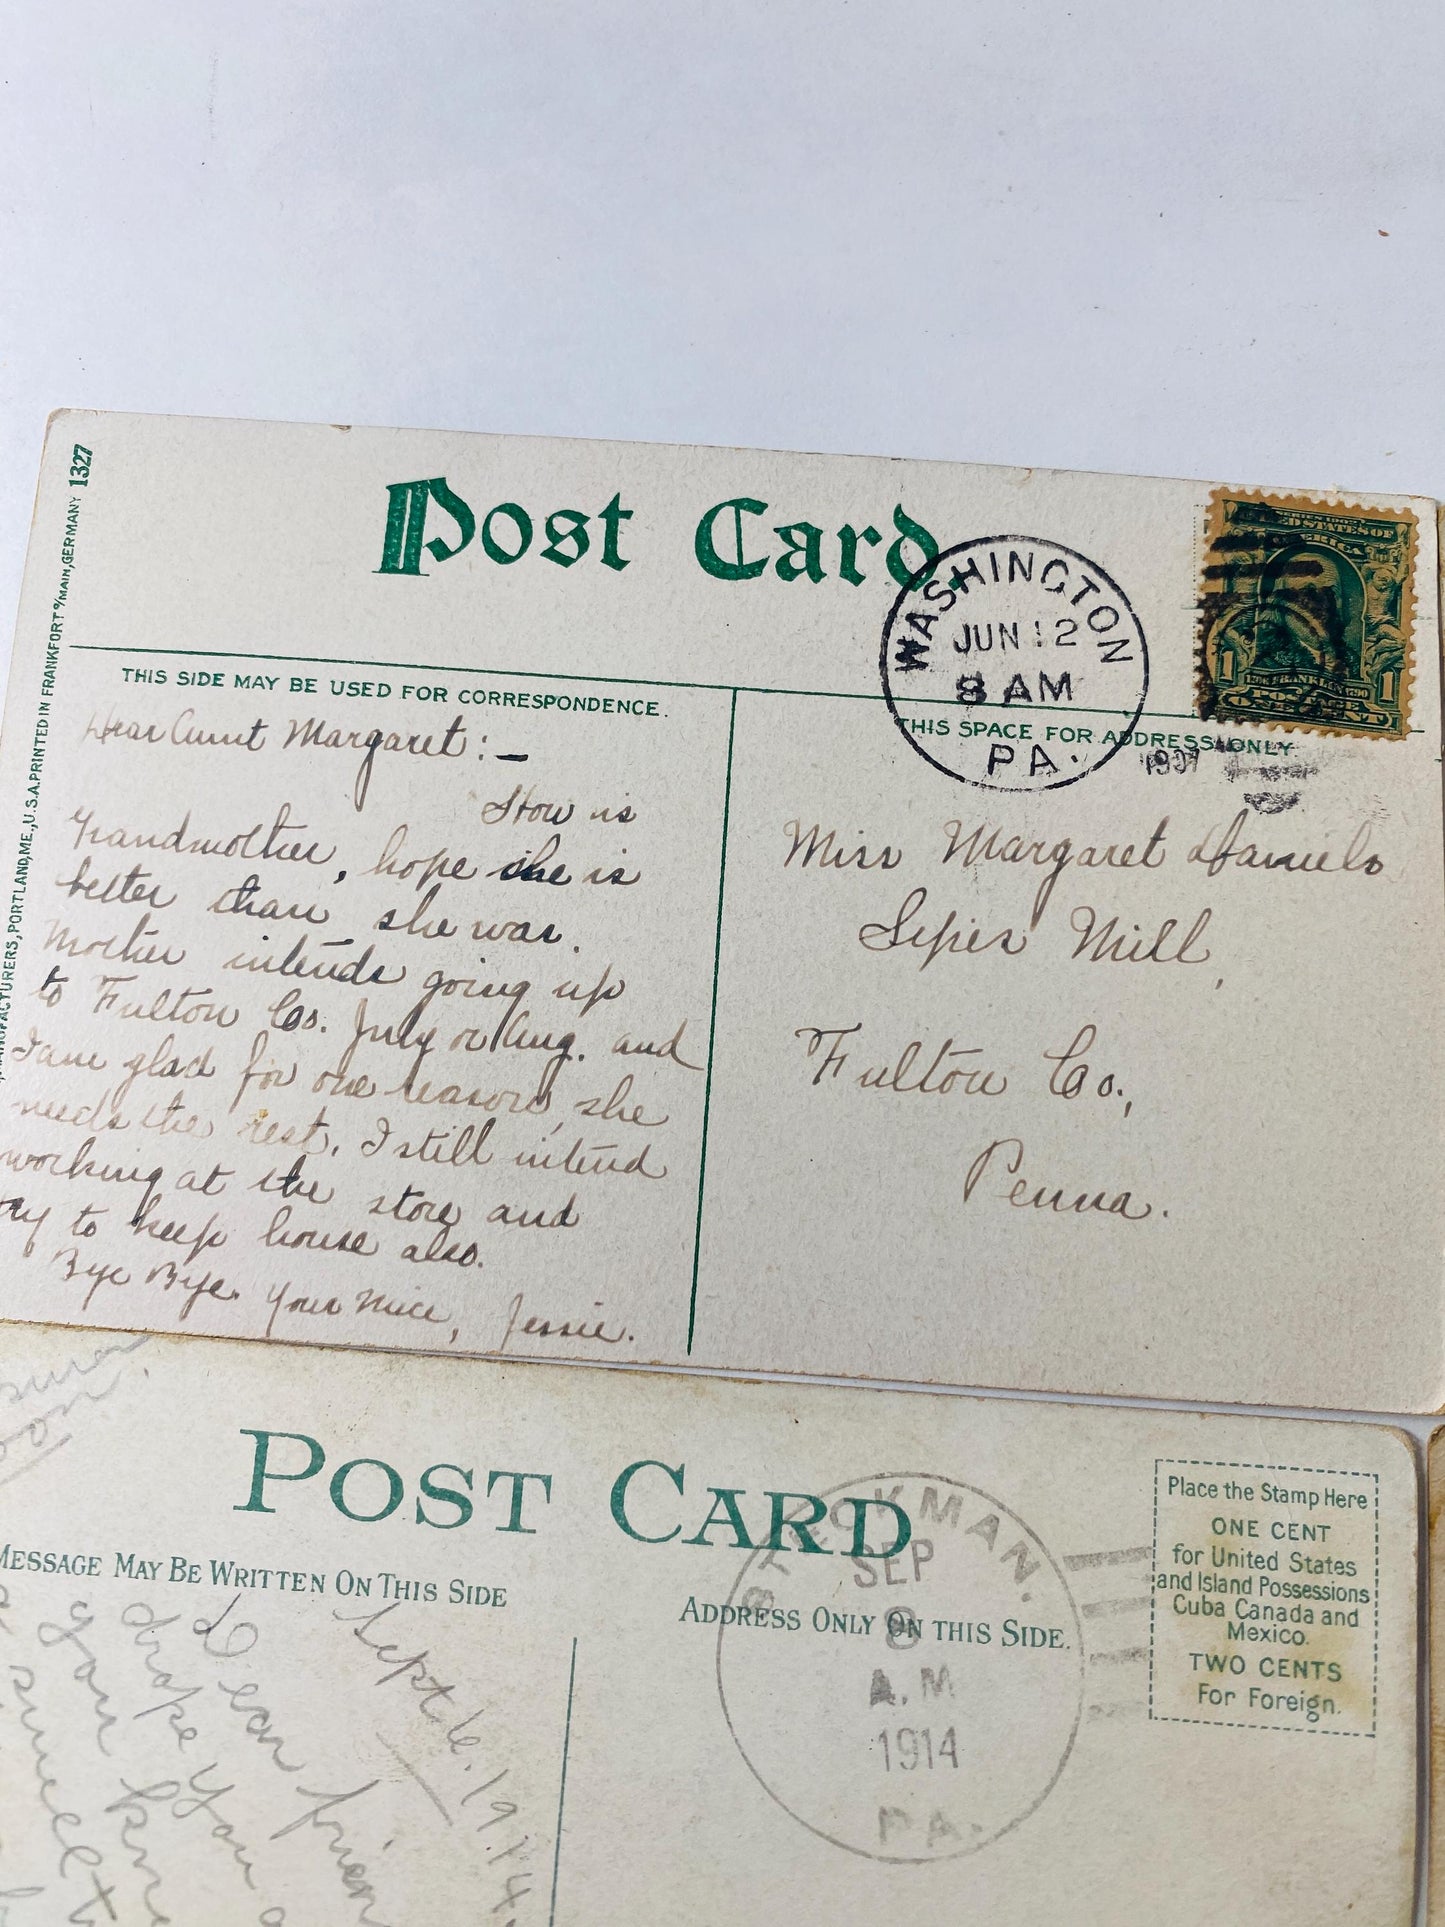 1327
MANUFACTURERS, PORTLAND, ME., U.S.A. PRINTED IN FRANKFORT o/MAIN, GERMANY
Post Card.
WASHINGTON
JUN 12
8 AM
PA.
1907
SERIES 1902
UNITED STATES OF
AMERICA
1 1706 FRANKLIN 1790 1
POSTAGE
ONE CENT
THIS SIDE MAY BE USED FOR CORRESPONDENCE.
THIS SPACE FOR ADDRESS ONLY.
Dear Aunt Margaret:—
How is
Grandmother, hope she is
better than she was.
Mother intends going up
to Fulton Co. July or Aug. and
I am glad for one reason, she
needs the rest. I still intend
working at the store and
try to keep house also.
Bye Bye. Your niece, Jessie.
Miss Margaret Daniels
Sipes Mill,
Fulton Co.,
Penna.
POST CARD
MESSAGE MAY BE WRITTEN ON THIS SIDE
ADDRESS ONLY ON THIS SIDE.
SEP
8
A.M
1914
PA.
Place the Stamp Here
ONE CENT
for United States
and Island Possessions
Cuba Canada and
Mexico.
TWO CENTS
For Foreign.
Sept 6, 1914.
Dear frien